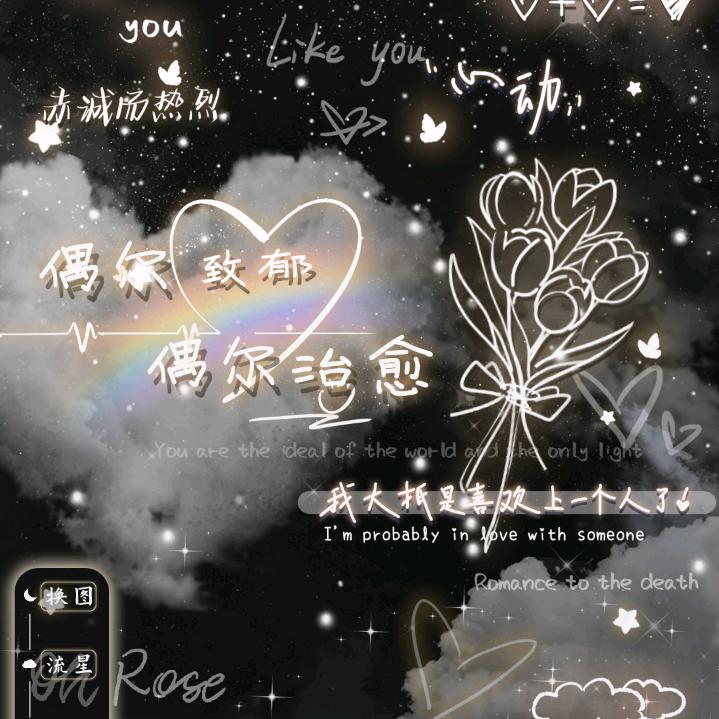 you
Like you
心动
赤诚而热烈
偶尔致郁
偶尔治愈
You are the ideal of the world and the only light
我大抵是喜欢上一个人了
I'm probably in love with someone
Romance to the death
换图
流星
on Rose